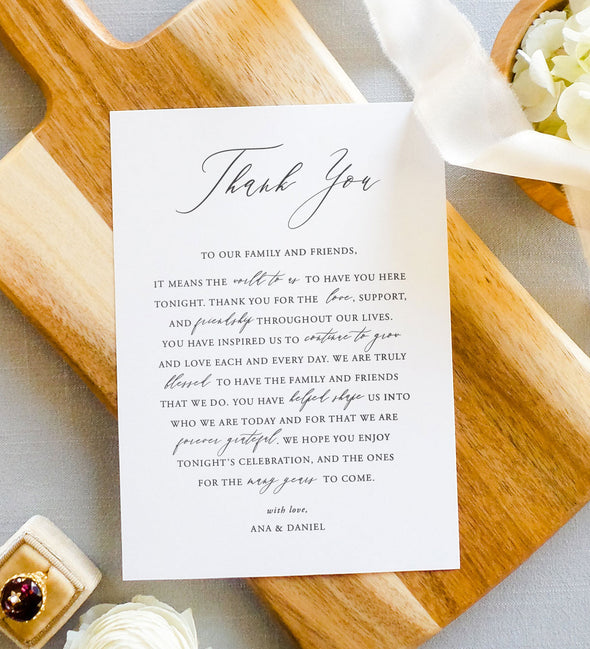 Thank You
TO OUR FAMILY AND FRIENDS,
IT MEANS THE world to us TO HAVE YOU HERE
TONIGHT. THANK YOU FOR THE love, SUPPORT,
AND friendship THROUGHOUT OUR LIVES.
YOU HAVE INSPIRED US TO continue to grow
AND LOVE EACH AND EVERY DAY. WE ARE TRULY
blessed TO HAVE THE FAMILY AND FRIENDS
THAT WE DO. YOU HAVE helped shape US INTO
WHO WE ARE TODAY AND FOR THAT WE ARE
forever grateful. WE HOPE YOU ENJOY
TONIGHT'S CELEBRATION, AND THE ONES
FOR THE many years TO COME.
with love,
ANA & DANIEL